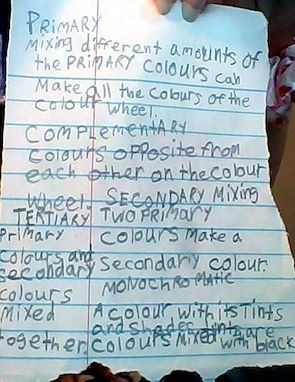 PRIMARY
Mixing different amounts of
the PRIMARY colours can
Make all the colours of the
colour wheel.
COMPLEMENTARY
colours opposite from
each other on the colour
wheel. SECONDARY Mixing
TERTIARY TWO PRIMARY
Primary colours Make a
colours and secondary colour.
secondary MONOCHROMATIC
colours
Mixed A colour, with its Tints
and shades tints are
together. colours Mixed with black